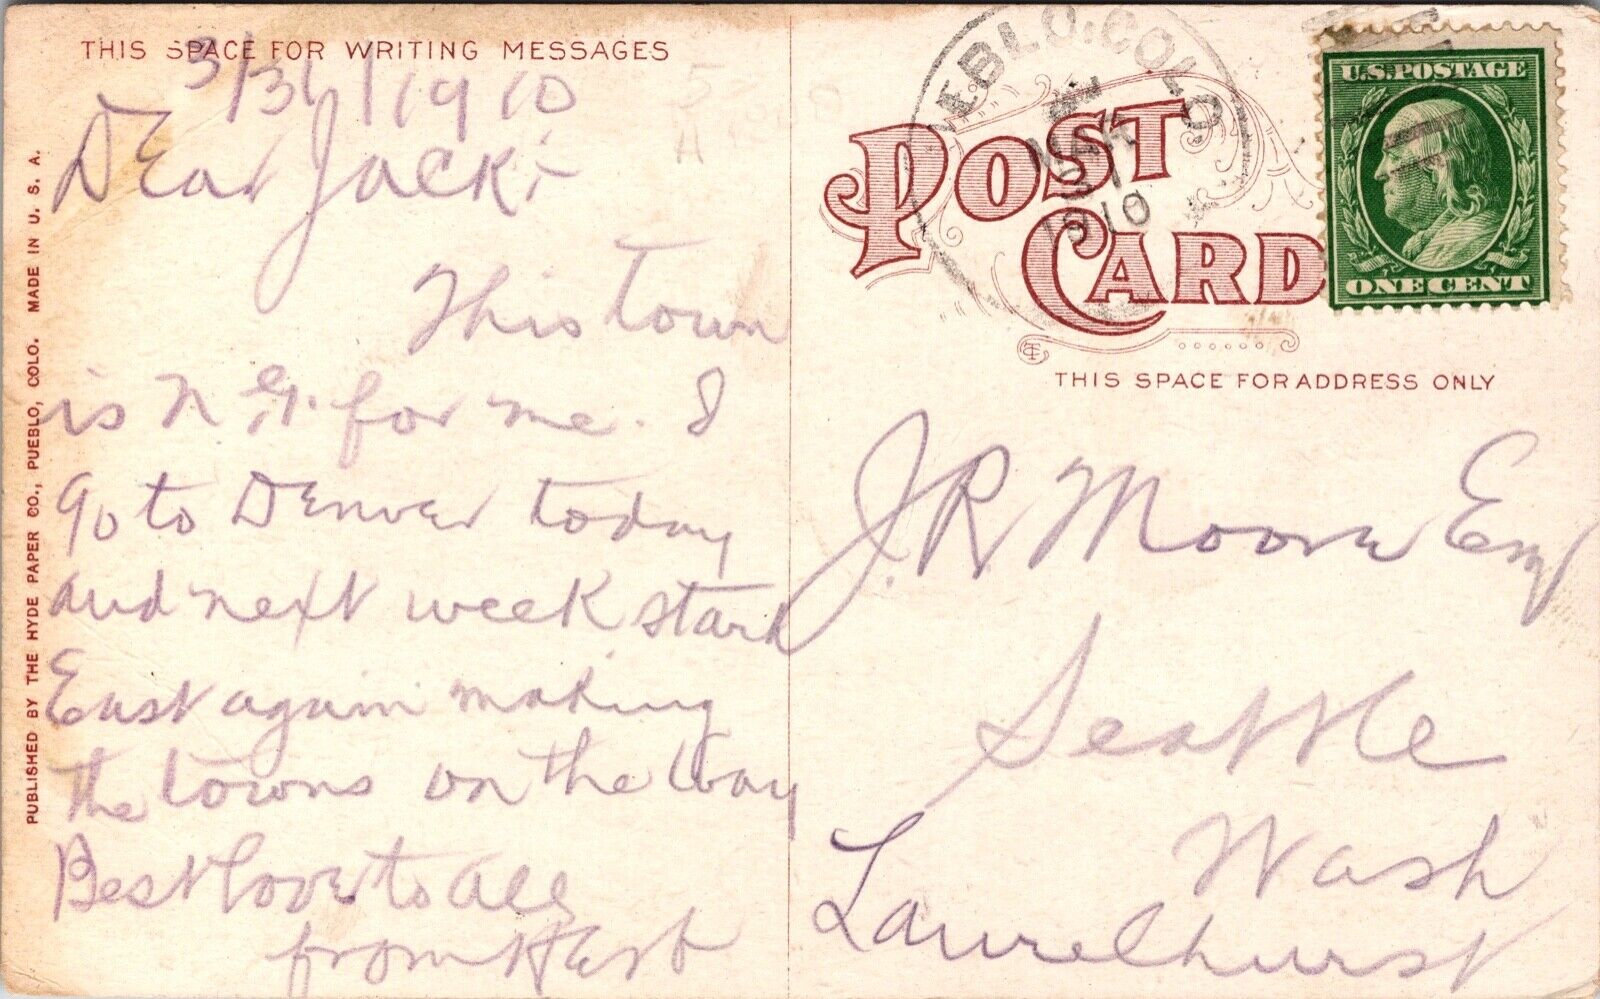 THIS SPACE FOR WRITING MESSAGES
3/31/1910
Dear Jack:-
This town
is N.G. for me. I
go to Denver today
and next week start
East again making
the towns on the way
Best love to all
from Herb
PUBLISHED BY THE HYDE PAPER CO., PUEBLO, COLO. MADE IN U. S. A.
PUEBLO, COLO.
MAR
31
1910
U.S. POSTAGE
ONE CENT
POST
CARD
THIS SPACE FOR ADDRESS ONLY
J.R. Moore Esq
Seattle
Wash
Laurelhurst